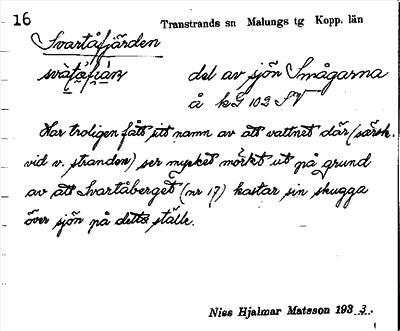 16 Transtrands sn Malungs tg Kopp. län
Svartåfjärden
del av sjön Smågarna
å kG 102 SV
Har troligen fått sitt namn av att vattnet där (särsk.
vid v. stranden) ser mycket mörkt ut på grund
av att Svartåberget (nr 17) kastar sin skugga
över sjön på detta ställe.
Niss Hjalmar Matsson 193 3.